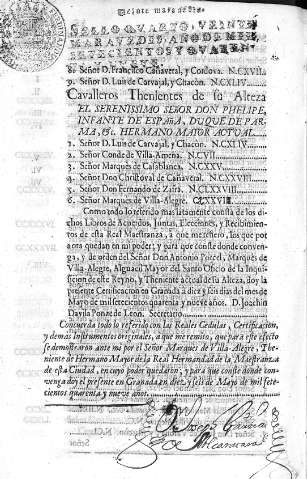 SELLO QUARTO, VEINTE
MARAVEDIS, AÑO DE MIL
SETECIENTOS Y QUAREN
8. Señor D. Francisco Cañaveral, y Cordova. N.CXVII
9. Señor D. Luis de Carvajal, y Chacòn. N.CXLIV.
Cavalleros Thenientes de su Alteza
EL SERENISSIMO SEÑOR DON PHELIPE,
INFANTE DE ESPAÑA, DUQUE DE PAR-
MA, &c. HERMANO MAIOR ACTUAL.
1. Señor D. Luis de Carvajal, y Chacòn. N.CXLIV.
2. Señor Conde de Villa-Amena. N.CVII.
3. Señor Marquès de Casablanca. N.CXXV.
4. Señor Don Christoval de Cañaveral. N.CXXVII.
5. Señor Don Fernando de Zafra. N.CLXXVIII.
6. Señor Marquès de Villa-Alegre. CLXXVIII.
Como todo lo referido mas latamente consta de los di-
chos Libros de Acuerdos, Juntas, Elecciones, y Recibimientos
de esta Real Maestranza, à que me refiero, los que por
aora quedan en mi poder; y para que conste donde conven-
ga, y de orden del Señor Don Antonio Marquès de
Villa-Alegre, Alguacil Mayor del Santo Oficio de la Inquisi-
cion de este Reyno, y Theniente actual de su Alteza, doy la
presente Certificacion en Granada à diez y seis dias del mes de
Mayo de mil setecientos quarenta y nueve años. D. Joachin
Davila Ponze de Leon. Secretario.
Concuerda todo lo referido con las Reales Cedulas, Certificacion,
y demàs Instrumentos originales, à que me remito, que para este efecto
se demostraron ante mi por el Señor Marquès de Villa-Alegre, The-
niente de Hermano Mayor de la Real Hermandad de la Maestranza
de esta Ciudad, en cuyo poder quedaron; y para que conste donde con-
venga doy el presente en Granada en diez y seis de Mayo de mil sete-
cientos quarenta y nueve años.